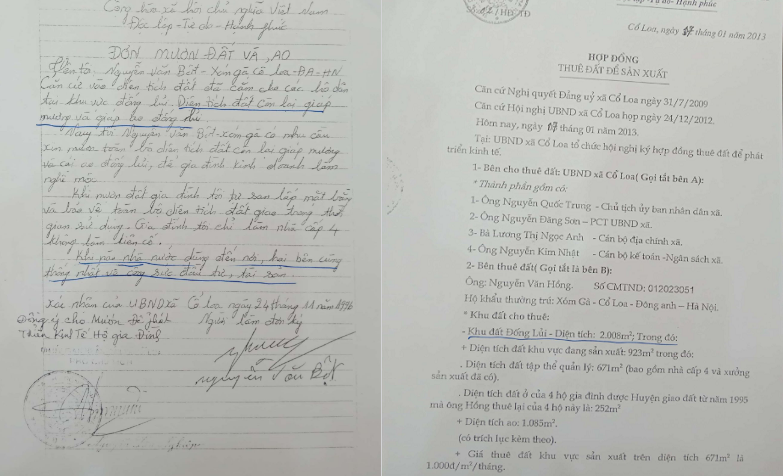 Cộng hòa xã hội chủ nghĩa Việt Nam
Độc lập - Tự do - Hạnh phúc
ĐƠN MƯỢN ĐẤT VÀ AO
Tên tôi: Nguyễn Văn Bột - Xóm gà cổ loa - ĐA - HN
Căn cứ vào diện tích đất đã cắm cho các hộ dân
tại khu vực đống lủi. Diện tích đất còn lại giáp
mương và giáp ao đống lủi
Nay tôi Nguyễn Văn Bột - Xóm gà có nhu cầu
xin mượn toàn bộ diện tích đất còn lại giáp mương
và cái ao đống lủi, để gia đình kinh doanh làm
nghề mộc.
Khi mượn đất gia đình tôi tự san lấp mặt bằng
và bảo vệ toàn bộ diện tích đất giao trong thời
gian sử dụng. Gia đình tôi chỉ làm nhà cấp 4
không làm kiên cố.
Khi nào nhà nước dùng đến nơi, hai bên cùng
thống nhất về công sức đầu tư, tài sản.
Xác nhận của UBND xã Cổ loa ngày 24 tháng 11 năm 1996
Đồng ý cho Mượn Để phát Người làm đơn ký
Triển Kinh Tế Hộ gia Đình
nguyễn Văn Bột
/HĐ/TĐ
lập - Tự do - Hạnh phúc
Cổ Loa, ngày 17 tháng 01 năm 2013
HỢP ĐỒNG
THUÊ ĐẤT ĐỂ SẢN XUẤT
Căn cứ Nghị quyết Đảng uỷ xã Cổ Loa ngày 31/7/2009
Căn cứ Hội nghị UBND xã Cổ Loa họp ngày 24/12/2012.
Hôm nay, ngày 17 tháng 01 năm 2013.
Tại: UBND xã Cổ Loa tổ chức hội nghị ký hợp đồng thuê đất để phát
triển kinh tế.
1- Bên cho thuê đất: UBND xã Cổ Loa( Gọi tắt bên A):
* Thành phần gồm có:
1- Ông Nguyễn Quốc Trung - Chủ tịch ủy ban nhân dân xã.
2- Ông Nguyễn Đăng Sơn – PCT UBND xã.
3- Bà Lương Thị Ngọc Anh - Cán bộ địa chính xã.
4- Ông Nguyễn Kim Nhật - Cán bộ kế toán -Ngân sách xã.
2- Bên thuê đất( Gọi tắt là bên B):
Ông: Nguyễn Văn Hồng. Số CMTND: 012023051
Hộ khẩu thường trú: Xóm Gà - Cổ Loa - Đông anh – Hà Nội.
* Khu đất cho thuê:
- Khu đất Đống Lủi - Diện tích: 2.008m²; Trong đó:
+ Diện tích đất khu vực đang sản xuất: 923m² trong đó:
. Diện tích đất tập thể quản lý: 671m² (bao gồm nhà cấp 4 và xưởng
sản xuất đã có).
. Diện tích đất ở của 4 hộ gia đình được Huyện giao đất từ năm 1995
mà ông Hồng thuê lại của 4 hộ này là: 252m²
+ Diện tích ao: 1.085m².
(có trích lục kèm theo).
+ Giá thuê đất khu vực sản xuất trên diện tích 671m² là
1.000đ/m²/tháng.